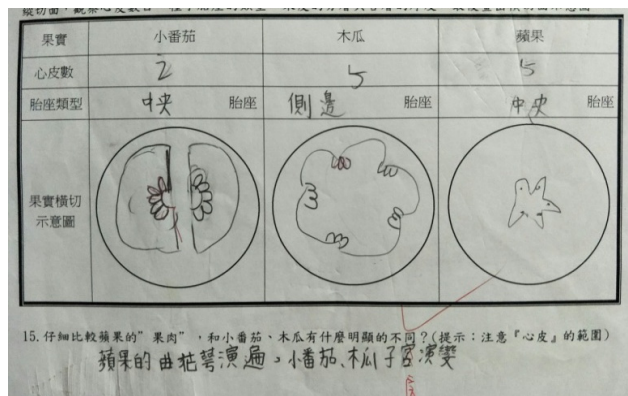 果實 小番茄 木瓜 蘋果
心皮數 2 5 5
胎座類型 中央 胎座 側邊 胎座 中央 胎座
果實橫切
示意圖
15.仔細比較蘋果的”果肉”，和小番茄、木瓜有什麼明顯的不同？(提示：注意『心皮』的範圍)
蘋果的由花萼演遍。小番茄、木瓜子宮演變